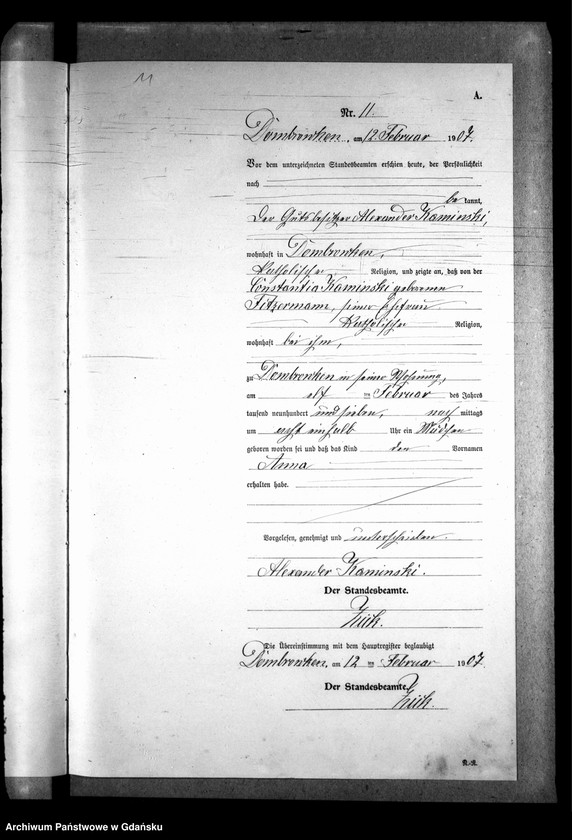 11
A.
Nr. 11.
Dombrowken, am 12 Februar 1907.
Vor dem unterzeichneten Standesbeamten erschien heute, der Persönlichkeit
nach
be kannt,
der Gutsbesitzer Alexander Kaminski,
wohnhaft in Dombrowken,
katholischer Religion, und zeigte an, daß von der
Constantia Kaminski geborenen
Fitzermann, seiner Ehefrau
katholischer Religion,
wohnhaft bei ihm,
zu Dombrowken in seiner Wohnung,
am elf ten Februar des Jahres
tausend neunhundert und sieben, nach mittags
um acht einhalb Uhr ein Mädchen
geboren worden sei und daß das Kind den Vornamen
Anna
erhalten habe.
Vorgelesen, genehmigt und unterschrieben
Alexander Kaminski.
Der Standesbeamte.
Die Übereinstimmung mit dem Hauptregister beglaubigt
Dombrowken, am 12 ten Februar 1907.
Der Standesbeamte.
Archiwum Państwowe w Gdańsku